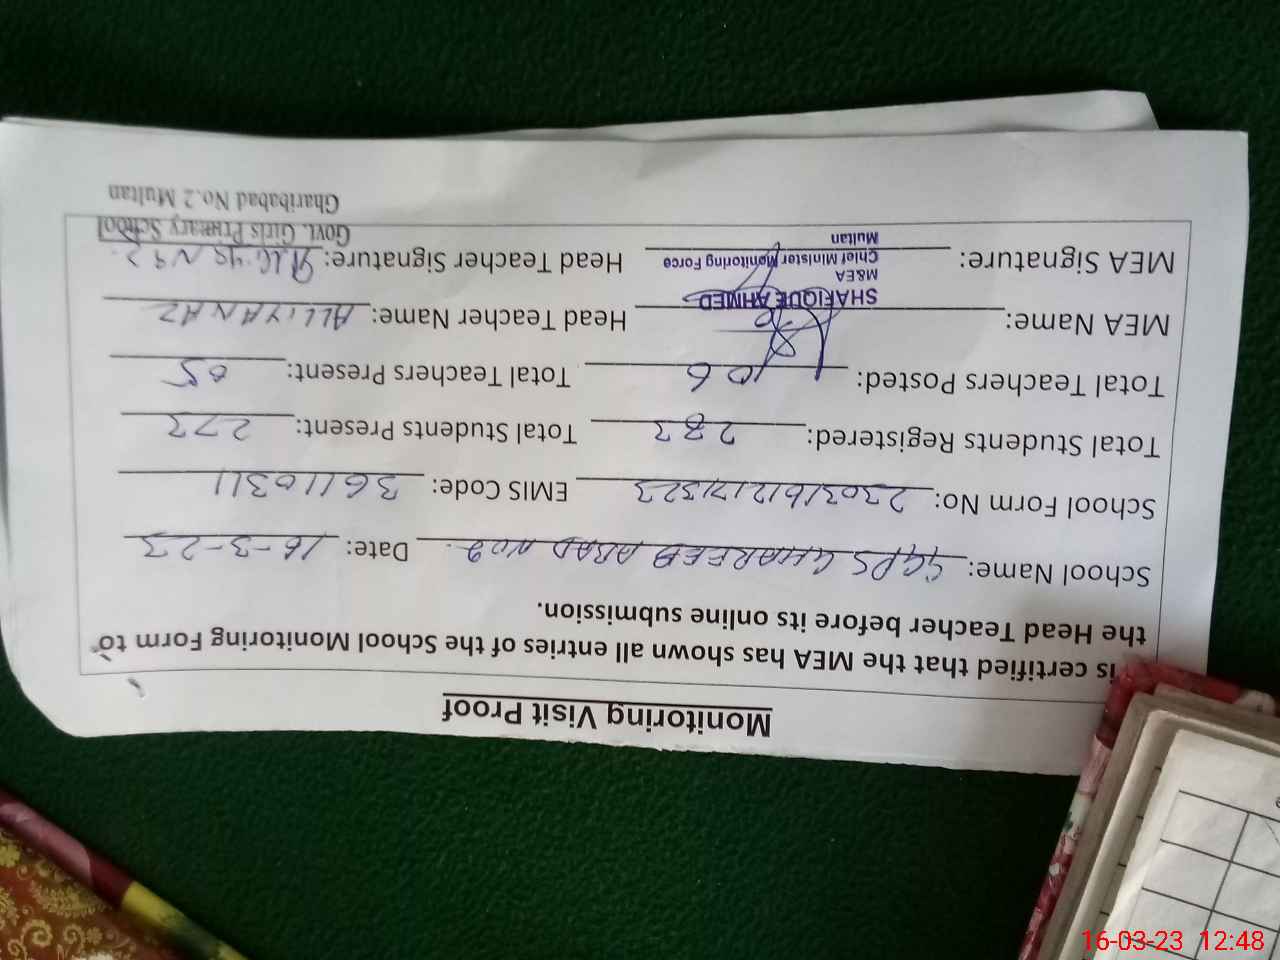 Monitoring Visit Proof
is certified that the MEA has shown all entries of the School Monitoring Form to
the Head Teacher before its online submission.
School Name: GGPS GHAREEB ABAD NO2. Date: 16-3-23
School Form No: 23031612171323 EMIS Code: 36110311
Total Students Registered: 283 Total Students Present: 273
Total Teachers Posted: 06 Total Teachers Present: 05
MEA Name: Head Teacher Name: ALLIYA NAZ
SHAFIQUE AHMED
M&EA
Chief Minister Monitoring Force
Multan
MEA Signature: Head Teacher Signature:
Govt. Girls Primary School
Gharibabad No.2 Multan
16-03-23 12:48